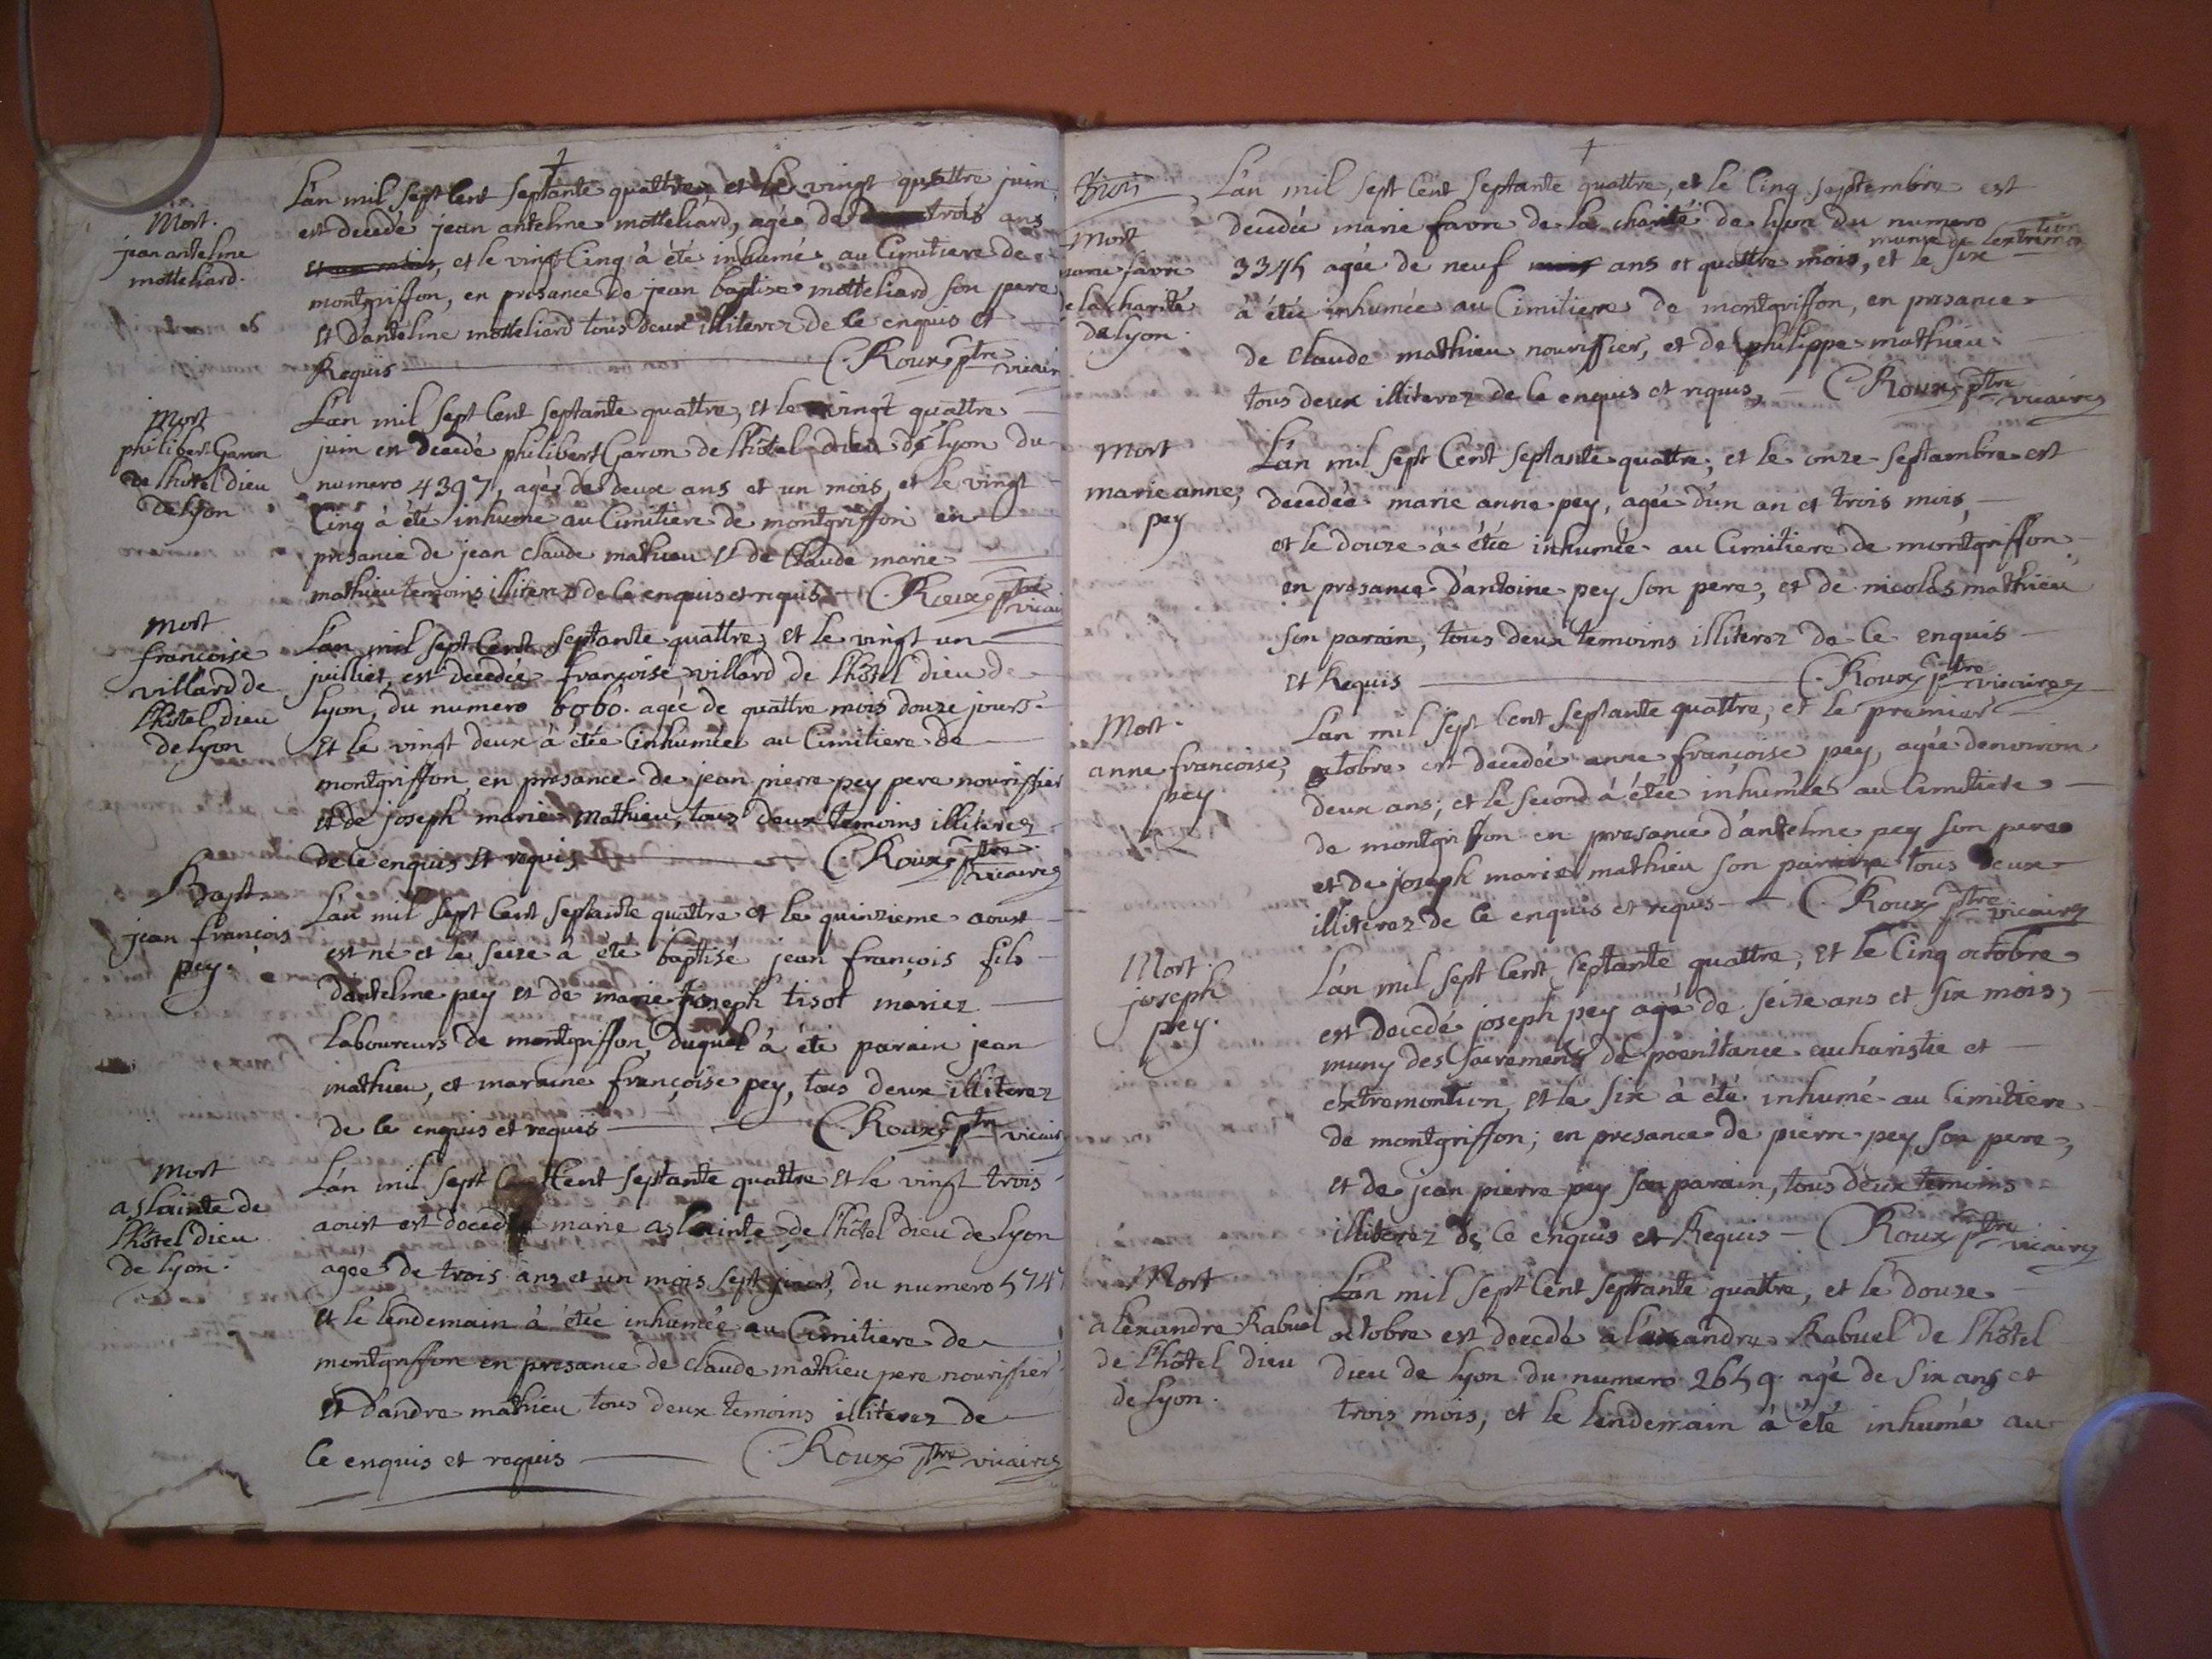 Mort.
jean antelme
motteliard.
L'an mil sept cent septante quattre, et le vingt quattre juin
est decedé jean antelme motteliard, agé de trois ans
et le vingt Cinq à été inhumé au Cimitiere de
montgriffon, en presance de jean baptise motteliard son pere
et dantelme motteliard tous deux illiterez de ce enquis et
Requis C. Roux ptre vicaire
Mort
philibert Garon
de lhotel dieu
de lyon
L'an mil sept Cent septante quattre, et le vingt quattre
juin est decedé philibert Garon de lhôtel-dieu de lyon du
numero 4397, agé de deux ans et un mois, et le vingt
Cinq à été inhumé au Cimitiere de montgriffon en
presance de jean claude mathieu et de Claude marie
mathieu temoins illiterez de ce enquis et requis C. Roux ptre vicaire
mort
francoise
villard de
lhotel dieu
de lyon
L'an mil sept Cent septante quattre, et le vingt un
juilliet, est decedée françoise villard de lhôtel dieu de
lyon, du numero 6060. agée de quattre mois douze jours.
et le vingt deux à étée inhumée au Cimitiere de
montgriffon, en presance de jean pierre pey pere nourissier
et de joseph marie mathieu, tous deux temoins illiterez
de ce enquis et requis C. Roux ptre vicaire
Bapt.
jean françois
pey.
L'an mil sept Cent septante quattre et le quinzieme aoust
est né et le seize à été baptisé jean françois fils
dantelme pey et de marie joseph tisot mariez
laboureurs de montgriffon, duquel à été parain jean
mathieu, et maraine françoise pey, tous deux illiterez
de ce enquis et requis C. Roux ptre vicaire
mort
aslainte de
lhôtel dieu
de lyon.
L'an mil sept Cent septante quattre et le vingt trois
aoust est decedée marie aslainte de lhôtel dieu de lyon
agée de trois ans et un mois sept jours, du numero 574
et le lendemain à étée inhumée au Cimitiere de
montgriffon en presance de claude mathieu pere nourissier
et dandre mathieu tous deux temoins illiterez de
ce enquis et requis C. Roux ptre vicaire
Mort
marie favre
de la charité
de lyon.
L'an mil sept Cent septante quattre, et le Cinq septembre est
decedée marie favre de la charité de lyon du numero
munie de lextremontion
3345 agée de neuf ans et quattre mois, et le six
à étée inhumée au Cimitiere de montgriffon, en presance
de Claude mathieu nourissier, et de philippe mathieu
tous deux illiterez de ce enquis et requis, C. Roux ptre vicaire
Mort
marie anne,
pey
L'an mil sept Cent septante quattre, et le onze septambre est
decedée marie anne pey, agée d'un an et trois mois,
et le douze à étée inhumée au Cimitiere de montgriffon
en presance d'antoine pey son pere, et de nicolas mathieu
son parain, tous deux temoins illiterez de ce enquis
et Requis C. Roux ptre vicaire
Mort.
anne francoise,
pey.
L'an mil sept Cent septante quattre, et le premier
octobre est decedée anne françoise pey, agée denviron
deux ans; et le second à étée inhumée au Cimitiere
de montgriffon en presance d'antelme pey son pere
et de joseph marie mathieu son parain tous deux
illiterez de ce enquis et requis C. Roux ptre vicaire
Mort.
joseph
pey.
L'an mil sept Cent septante quattre, et le Cinq octobre
est decedé joseph pey agé de seize ans et six mois,
muny des sacremens de poenitance eucharistie et
extremontion, et le six à été inhumé au Cimitiere
de montgriffon; en presance de pierre pey son pere,
et de jean pierre pey son parain, tous deux temoins
illiterez de ce enquis et Requis C. Roux ptre vicaire
Mort
alexandre Rabuel
de lhôtel dieu
de lyon.
L'an mil sept Cent septante quattre, et le douze
octobre est decedé alexandre Rabuel de lhôtel
dieu de lyon du numero 2659. agé de six ans et
trois mois, et le lendemain à été inhumé au